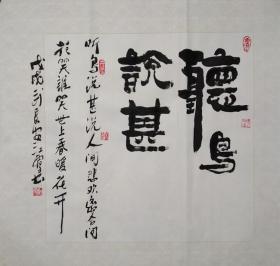 聽鳥
說甚
听鸟说甚说人间悲欢离合问
於笑谁笑世上春暖花开
戊戌